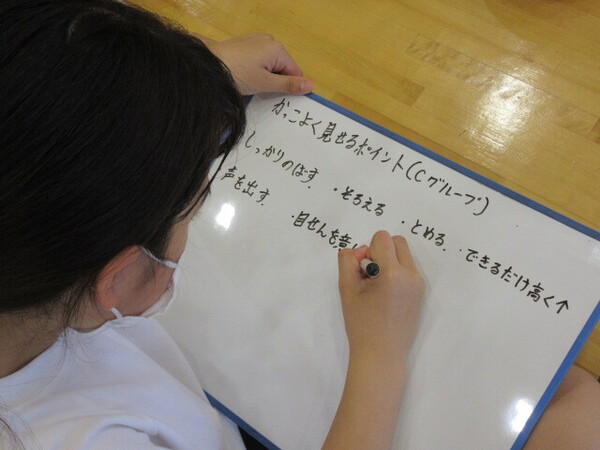 かっこよく見せるポイント(Cグループ)
しっかりのばす. ・そろえる ・とめる. ・できるだけ高く↑
声を出す. ・目せんを意